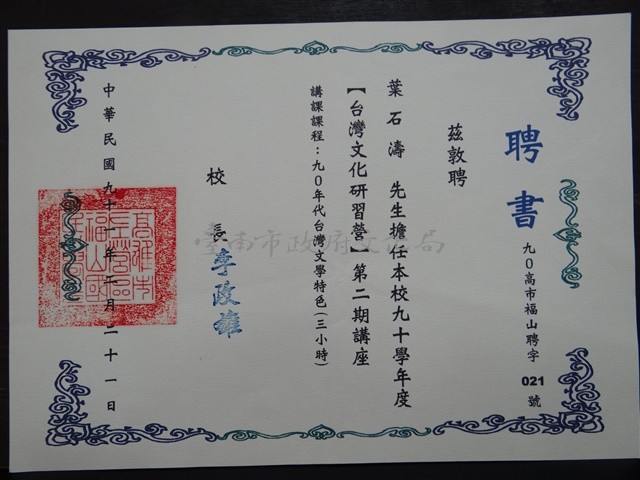 聘書
九０高市福山聘字021號
茲敦聘
葉石濤 先生擔任本校九十學年度
【台灣文化研習營】第二期講座
講課課程：九０年代台灣文學特色(三小時)
校長李政雄
中華民國九十一年二月二十一日
臺南市政府文化局